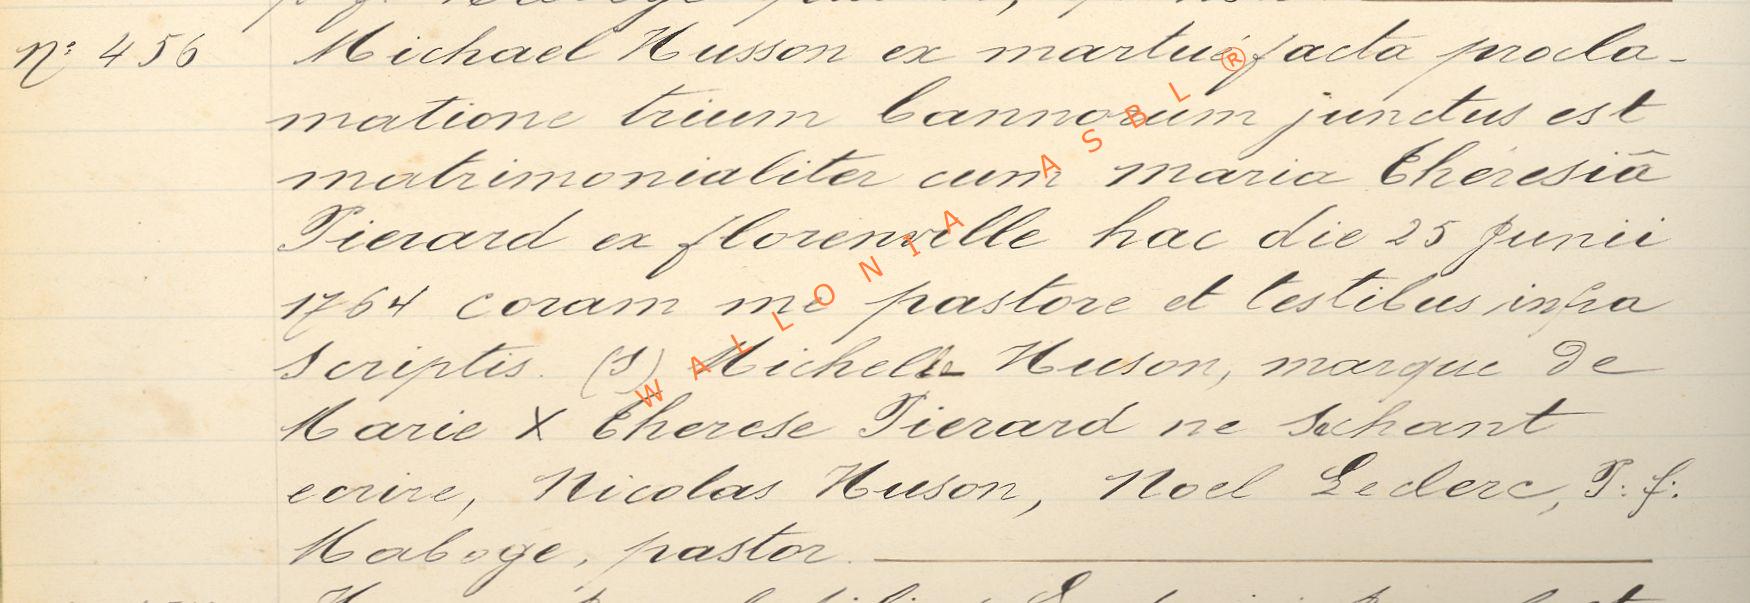 nº 456 Michael Husson ex martué facta procla-
matione trium bannorum junctus est
matrimonialiter cum maria théresiâ
Pierard ex florenville hac die 25 Junii
1764 coram me pastore et testibus infra
scriptis. (s) Michelle Huson, marque de
Marie X therese Pierard ne sachant
ecrire, Nicolas Huson, Noel Leclerc, P: f:
Maboge, pastor.
WALLONIA ASBL ®